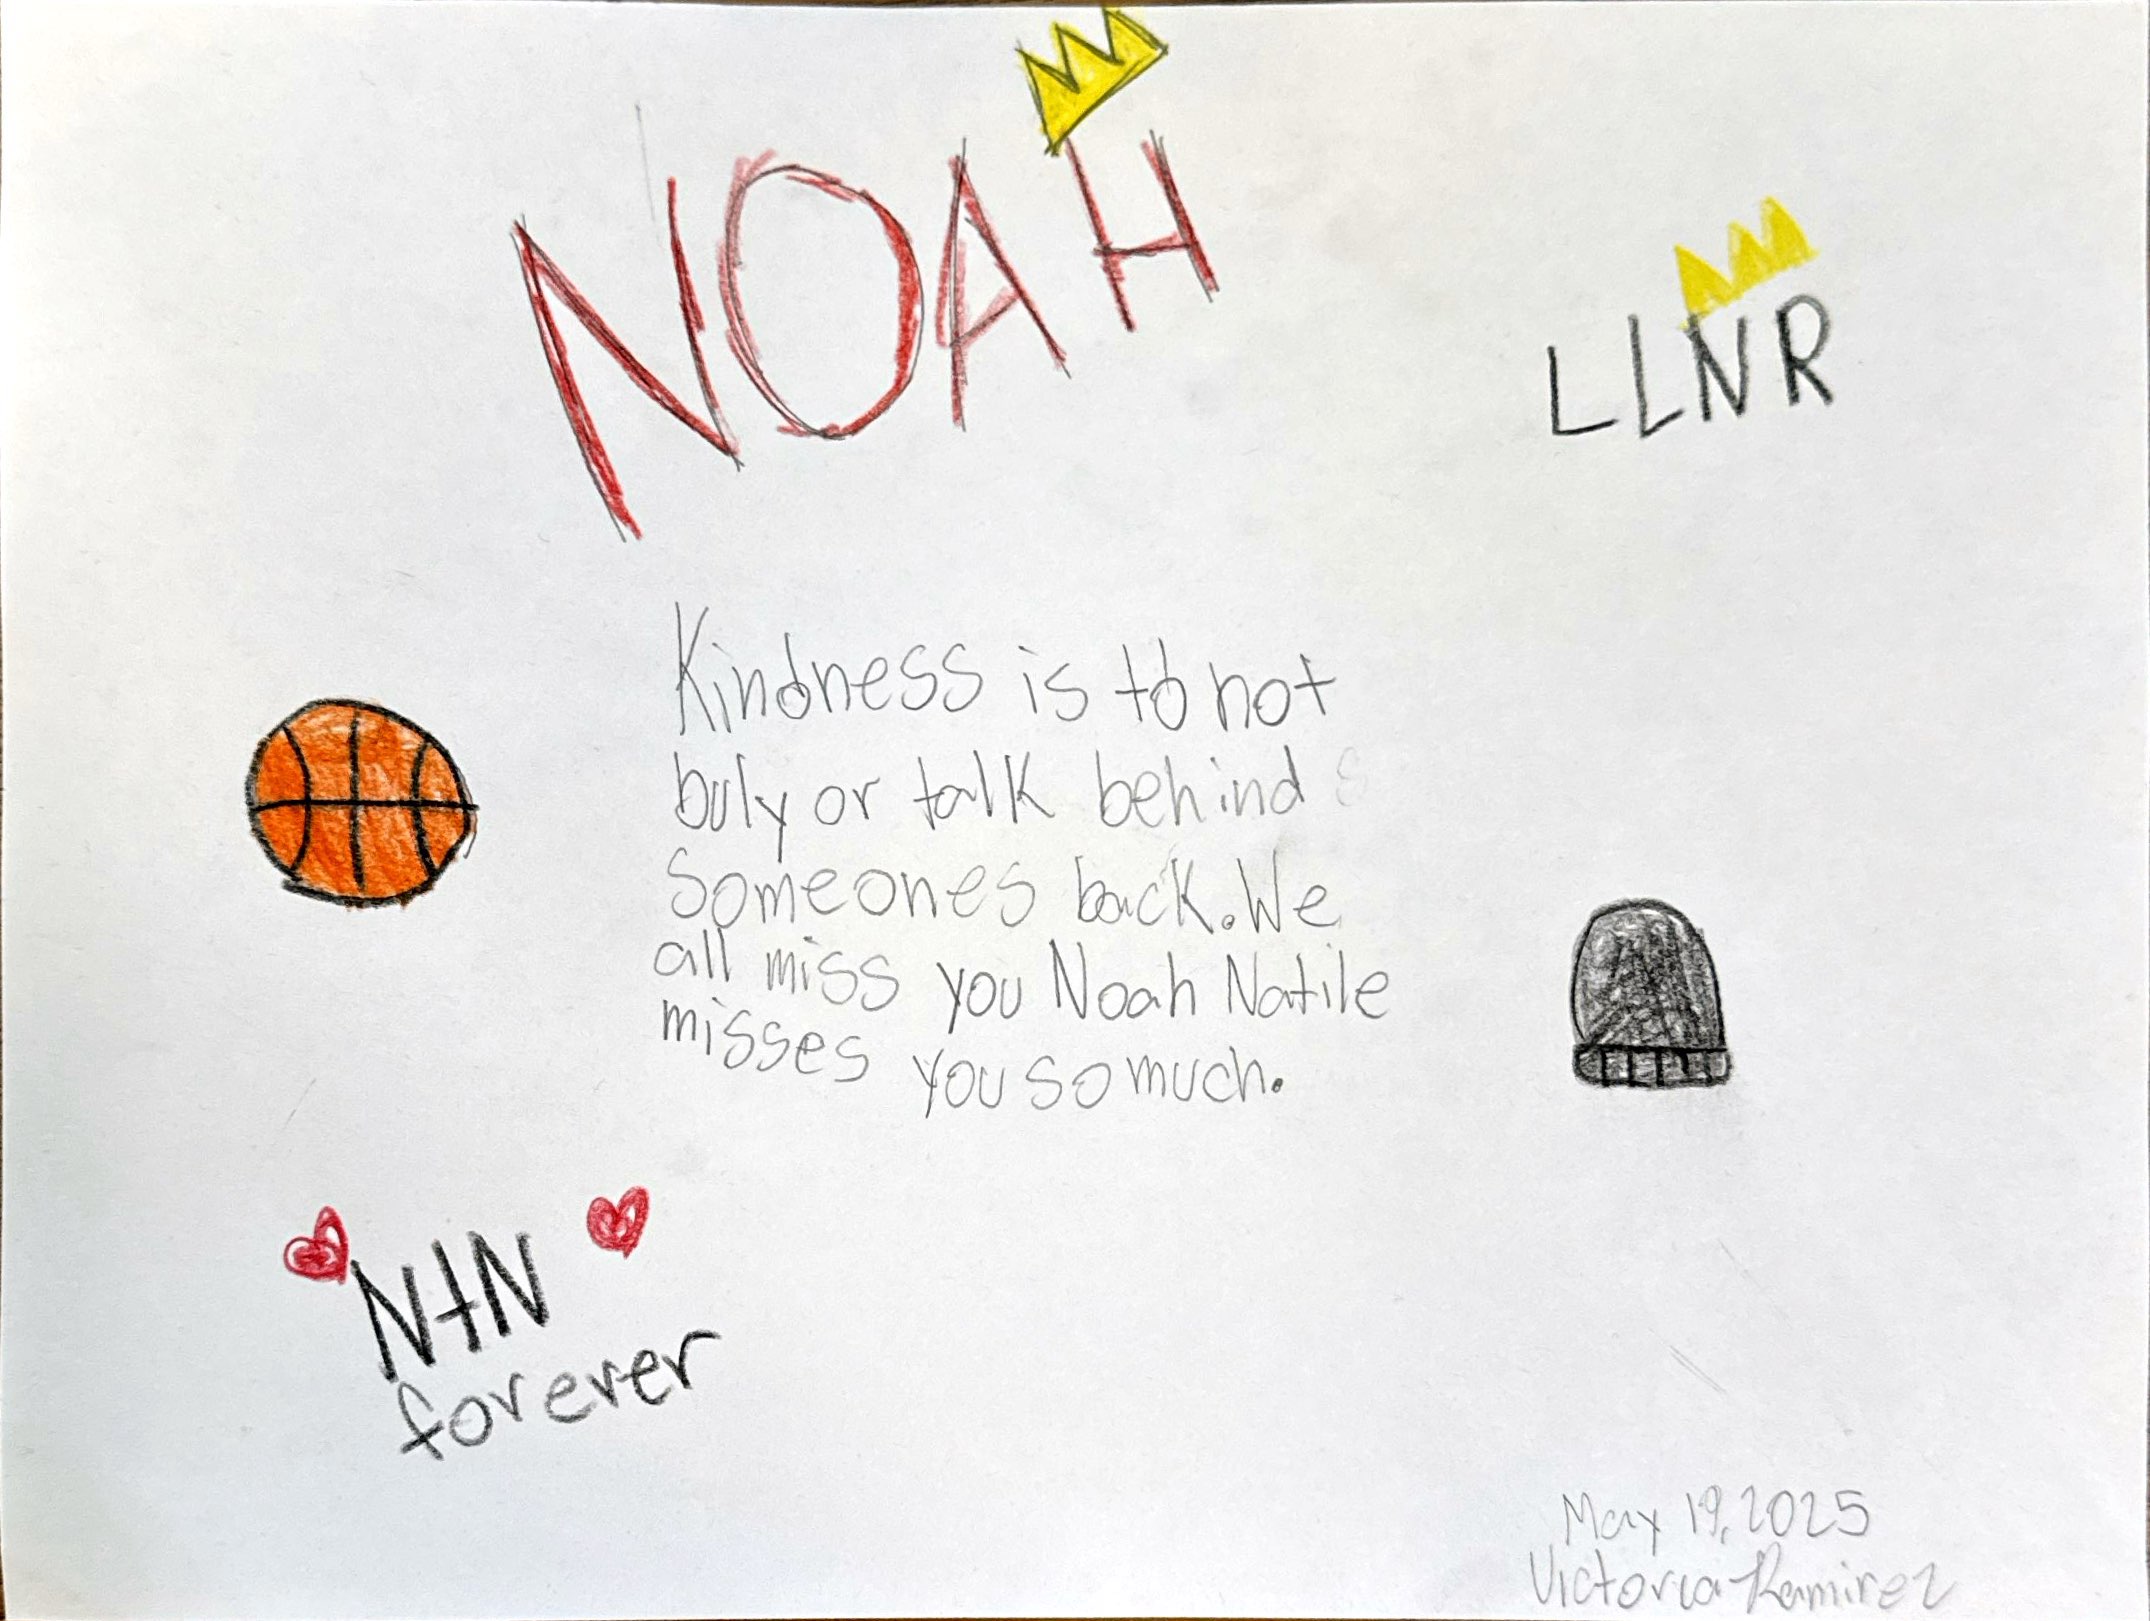 NOAH
LLNR
Kindness is to not
buly or talk behind
Someones back. We
all miss you Noah Natile
misses you so much.
N+N
forever
May 19, 2025
Victoria Ramirez